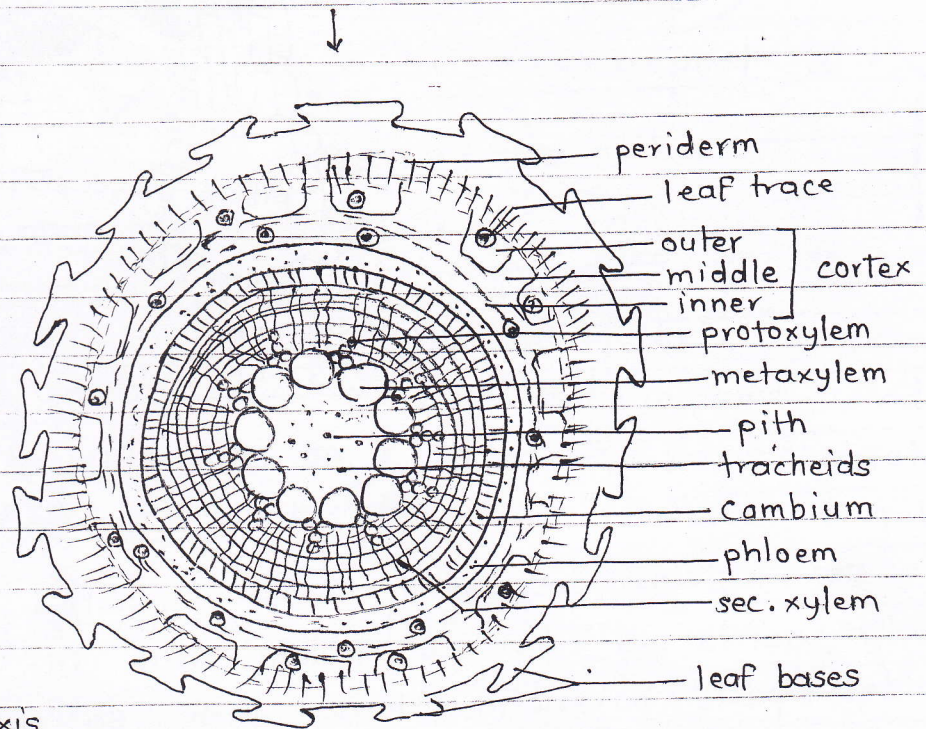 periderm
leaf trace
outer
middle
inner
cortex
protoxylem
metaxylem
pith
tracheids
cambium
phloem
sec. xylem
leaf bases